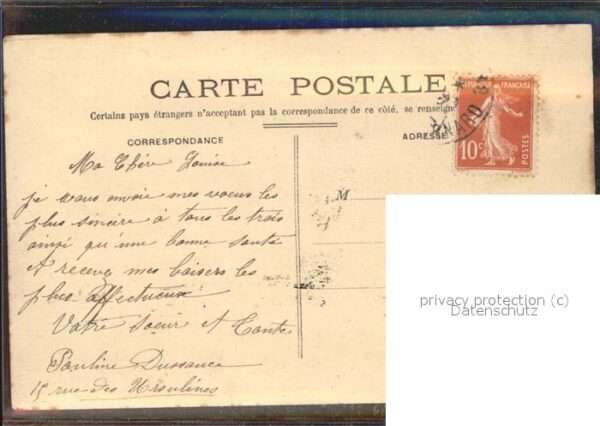 CARTE POSTALE
Certains pays étrangers n'acceptant pas la correspondance de ce côté, se renseign
CORRESPONDANCE
ADRESSE
RÉPUBLIQUE FRANÇAISE
10c
POSTES
Ma Chère Louise
je vous envoie mes voeux les
plus sincère à tous les trois
ainsi qu'une bonne santé
et recevez mes baisers les
plus affectueux
Votre soeur et Tante
Pauline Dussauce
15 rue des Ursulines
M
privacy protection (c)
Datenschutz